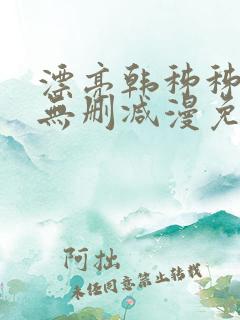 漂亮韩秭秭
無删减漫免
阿拙
未任同意禁止转载